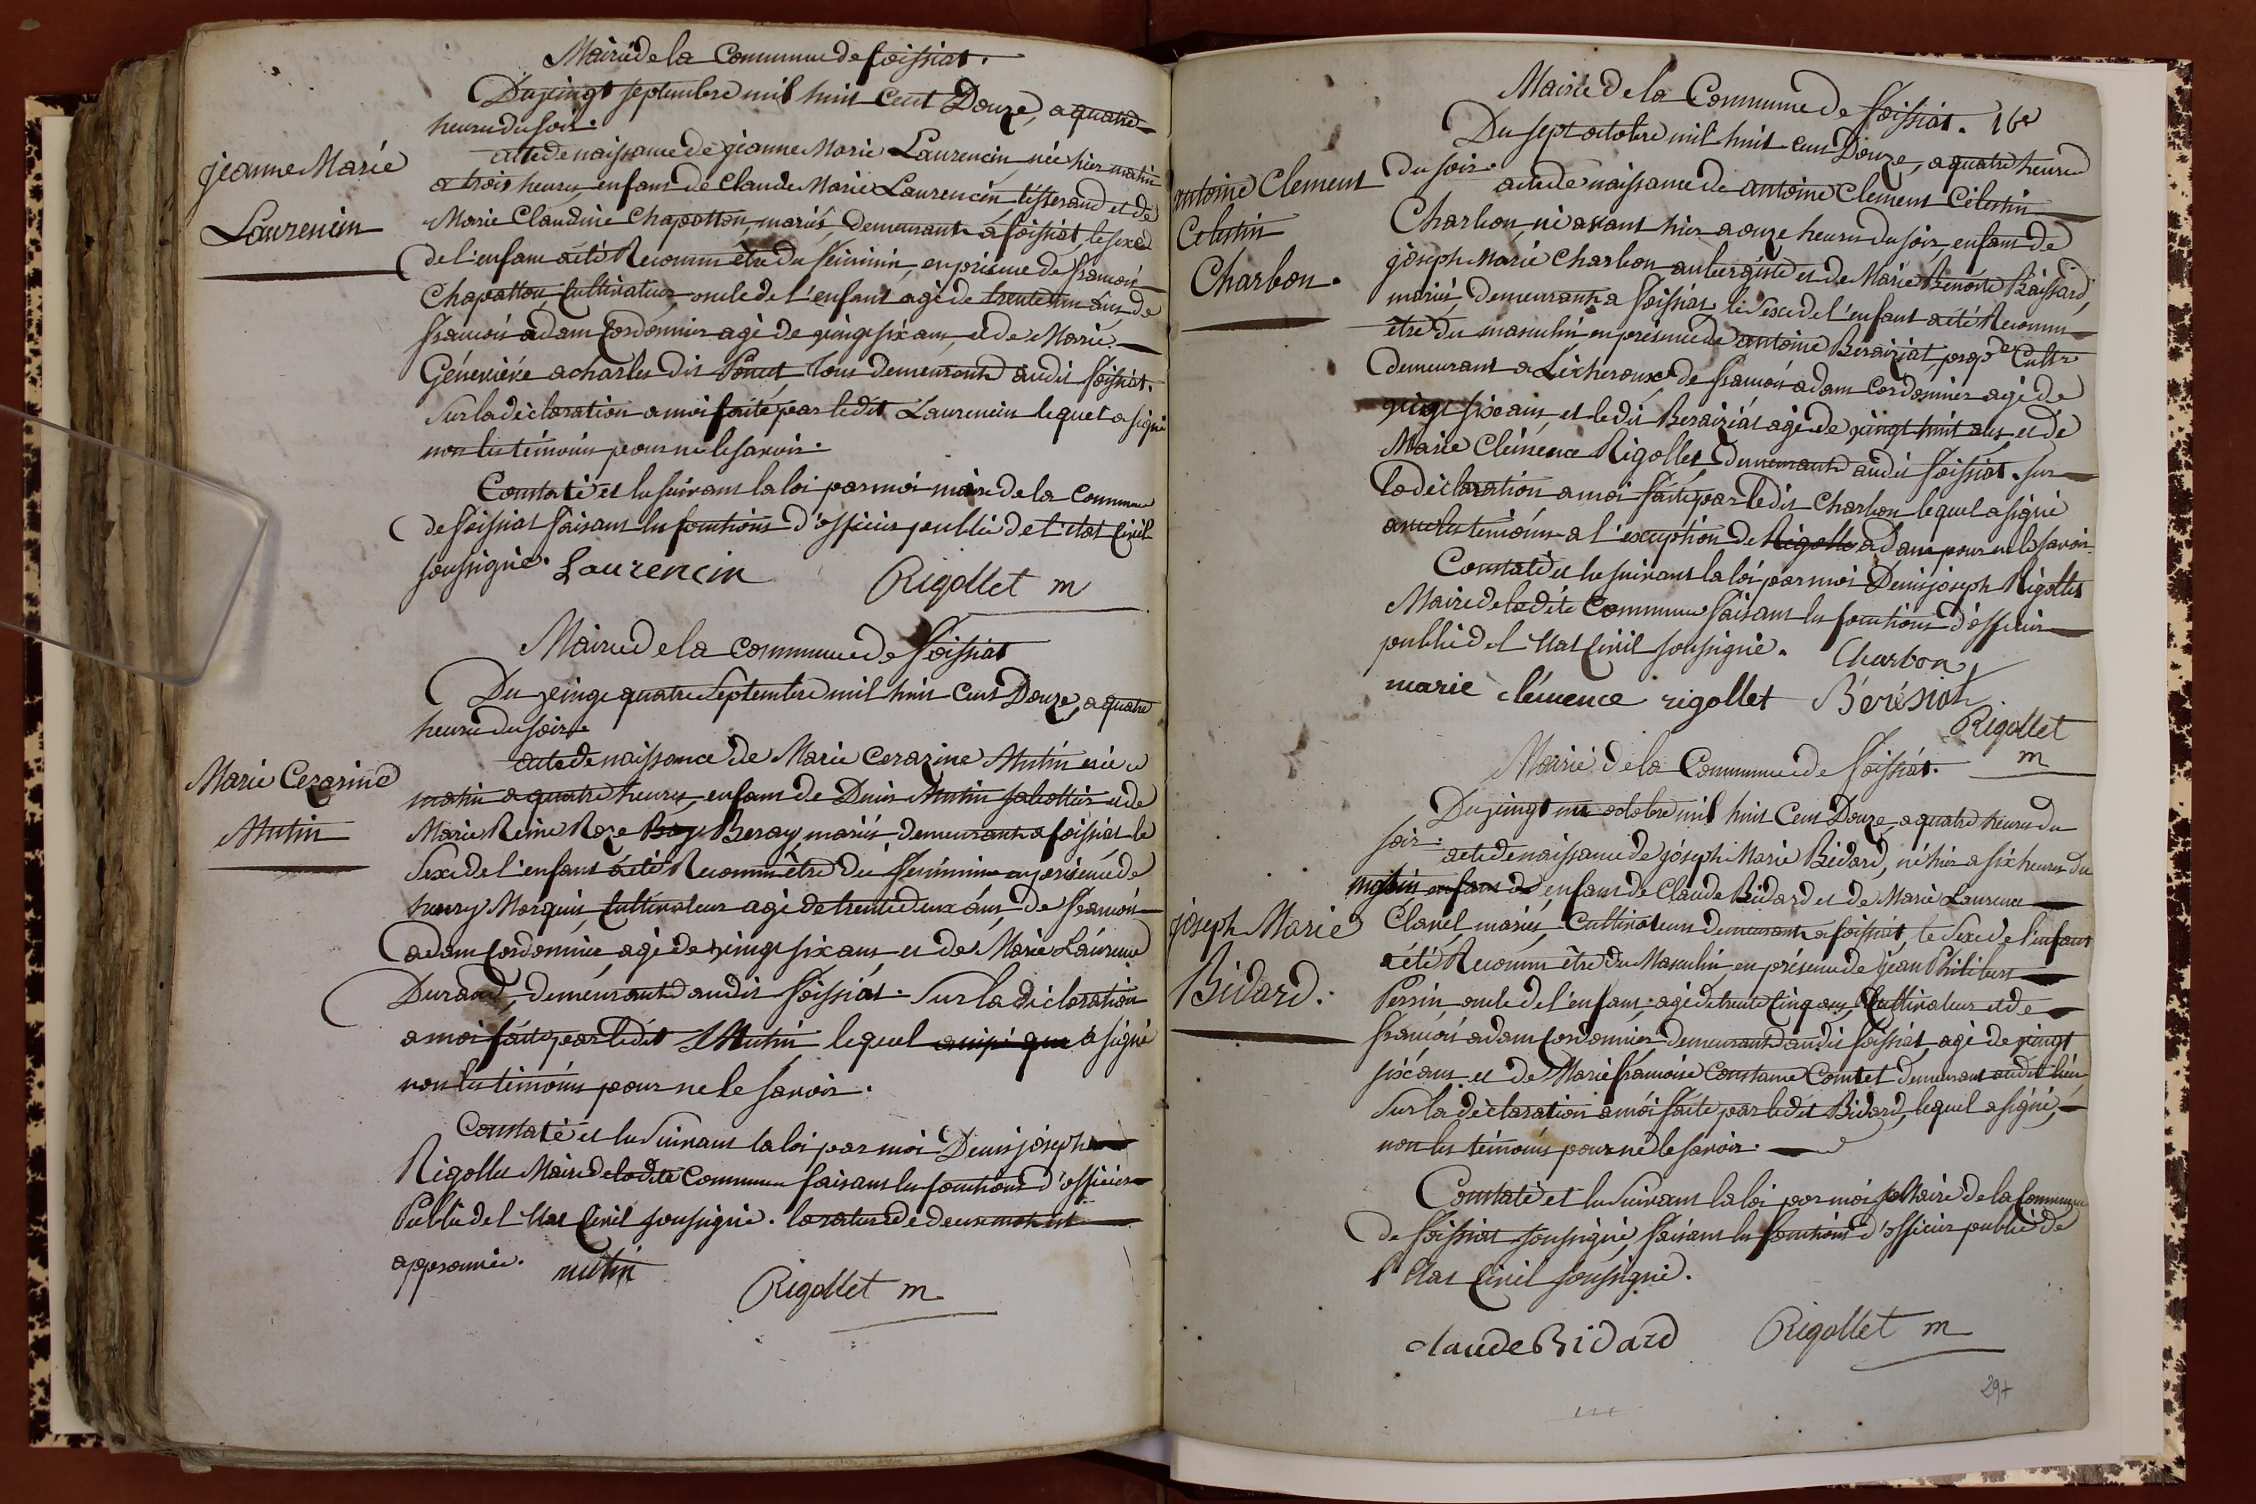 Mairie de la Commune de foissiat.
Du vingt septembre mil huit Cent Douze, a quatre
heure du soir.
acte de naissance de jeanne Marie Laurencin, née hier matin
a trois heures, enfant de Claude Marie Laurencin tisserand et de
Marie Claudine Chapotton, mariés, Demeurants a foissiat, le sexe
de l'enfant a été Reconnu être du féminin, en présence de francois
Chapotton Cultivateur, oncle de l'enfant agé de trente un ans, de
francois adam Cordonnier agé de vingt six ans, et de Marie
Géneviéve acharles dit Poncet, tous demeurants audit foissiat.
Sur la déclaration a moi faite par ledit Laurencin lequel a signé
non les témoins pour ne le savoir.
Constaté et lu suivant la loi par moi maire de la Commune
de foissiat faisant les fonctions d'officier public de l'état Civil
soussigné. Laurencin Rigollet m
jeanne Marie
Laurencin
Mairie de la commune de foissiat
Du vingt quatre Septembre mil huit Cent Douze, a quatre
heure du soir.
acte de naissance de Marie Cerazine Mutin née ce
matin a quatre heures, enfant de Denis Mutin sabottier et de
Marie Reine Roze Beray, mariés demeurants a foissiat le
Sexe de l'enfant a été Reconnu être du féminin en présence de
henry Morquin Cultivateur agé de trente deux ans, de francois
adam Cordonnier, agé de vingt six ans, et de Marie Laurence
Durand, demeurants audit foissiat. Sur la déclaration
a moi faite par ledit Mutin, lequel a signé
non les témoins pour ne le savoir.
Constaté et lu Suivant la loi par moi Denis joseph
Rigollet Maire de ladite Commune faisant les fonctions d'officier
Public de l'Etat Civil soussigné. la rature de deux mots est
approuvée. mutin Rigollet m
Marie Cezarine
Mutin
Mairie de la Commune de foissiat. 16e
Du sept octobre mil huit cent Douze, a quatre heure
du soir.
acte de naissance de antoine Clement Célestin
Charbon, né avant hier a onze heures du soir, enfant de
joseph Marie Charbon aubergiste et de Marie Benoite Baissard,
mariés, demeurants a foissiat, le sexe de l'enfant a été Reconnu
être du masculin en présence de antoine Beraiziat, prop.re Cultr
demeurant a Lécheroux, de francois adam cordonnier agé de
vingt six ans, et ledit Beraiziat agé de vingt huit ans, et de
Marie Clémence Rigollet, Demeurants audit foissiat. sur
la déclaration a moi faite par ledit Charbon lequel a signé
avec les témoins a l'exception de Rigollet adam pour ne le savoir.
Constaté et lu suivant la loi par moi Denis joseph Rigollet
Maire de ladite Commune faisant les fonctions d'officier
public de l'Etat Civil soussigné. Charbon
marie clémence rigollet Béréziat
Rigollet
m
antoine Clement
Celestin
Charbon.
Mairie de la Commune de foissiat.
Du vingt un octobre mil huit Cent Douze, a quatre heures du
soir. acte de naissance de joseph Marie Bidard, né hier a six heures du
matin enfant de enfant de Claude Bidard et de Marie Laurence
Clavel, mariés, Cultivateurs demeurants a foissiat, le Sexe de l'enfant
a été Reconnu être du Masculin en présence de jean Philibert
Perrin, oncle de l'enfant, agé de trente Cinq ans, Cultivateur et de
francois adam Cordonnier demeurants audit foissiat, agé de vingt
six ans, et de Marie francoise Constance Comtet demeurant audit lieu
Sur la déclaration a moi faite par ledit Bidard, lequel a signé,
non les témoins pour ne le savoir.
Constaté et lu Suivant la loi par moi Maire de la Commune
de foissiat soussigné, faisant les fonctions d'officier public de
l'Etat Civil soussigné.
claude Bidard Rigollet m
joseph Marie
Bidard.
297